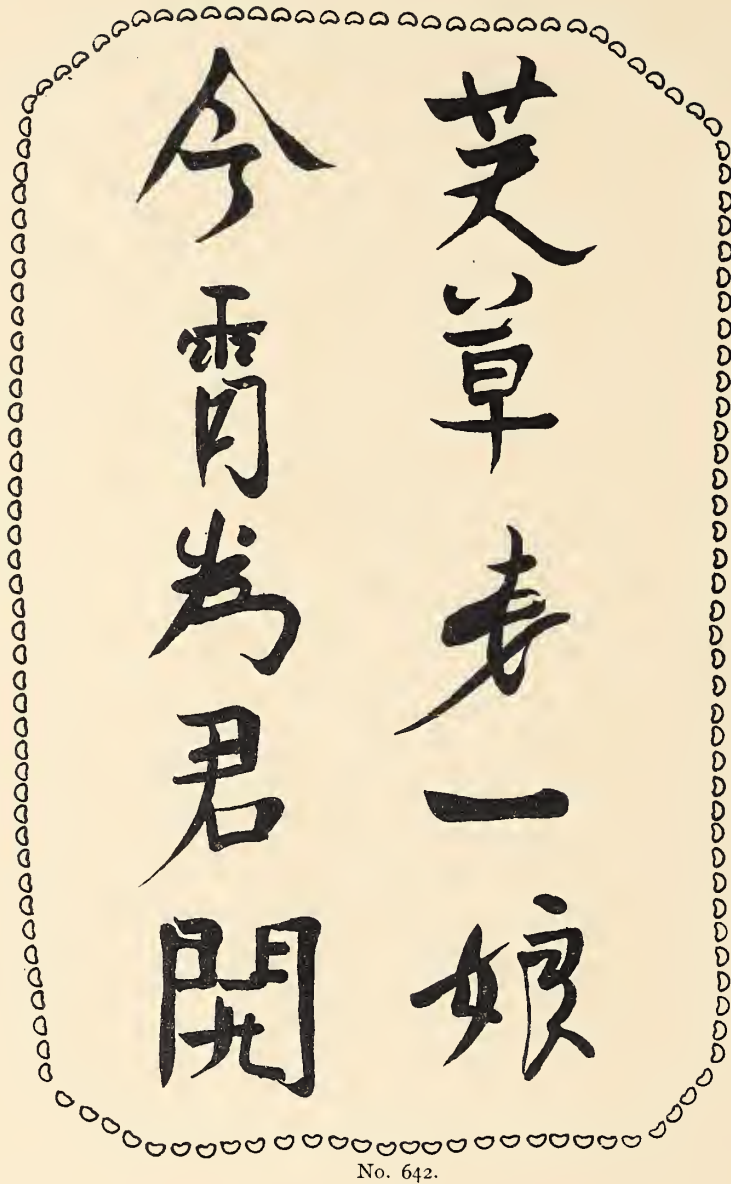 芝草老一娘
今霄為君開
No. 642.